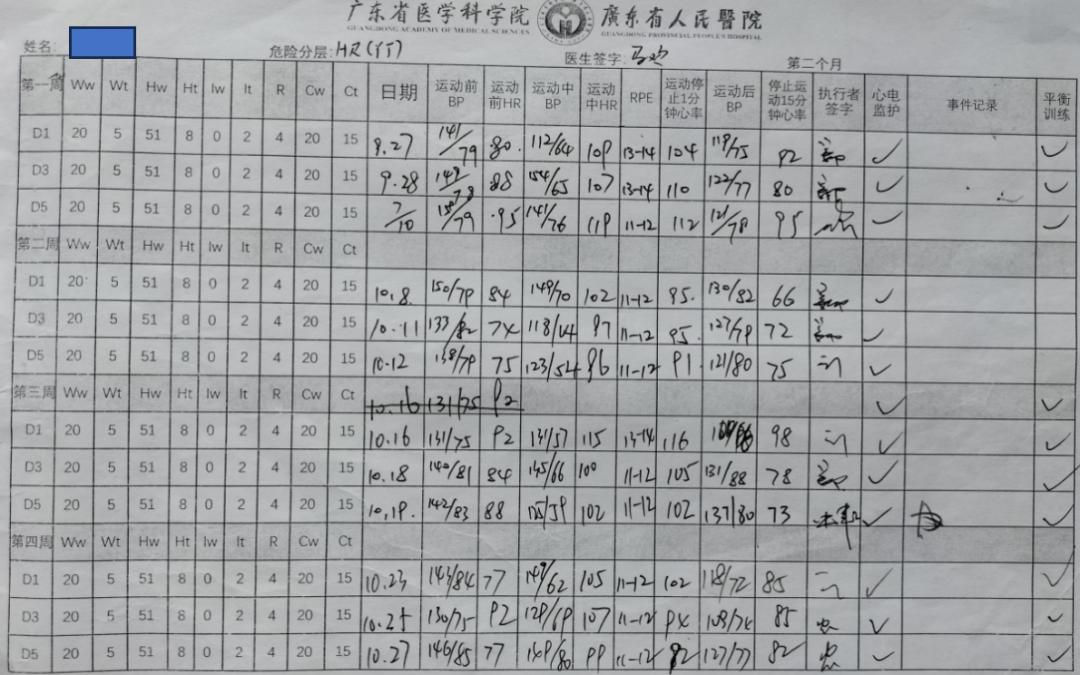 广东省医学科学院 廣东省人民醫院
GUANGDONG ACADEMY OF MEDICAL SCIENCES GUANGDONG PROVINCIAL PEOPLE'S HOSPITAL
姓名: 危险分层: HR 医生签字: 第二个月
第一周 Ww Wt Hw Ht Iw It R Cw Ct 日期 运动前BP 运动前HR 运动中BP 运动中HR RPE 运动停止1分钟心率 运动后BP 停止运动15分钟心率 执行者签字 心电监护 事件记录 平衡训练
D1 20 5 51 8 0 2 4 20 15 9.27 141/79 80 112/64 109 13-14 104 119/75 92 ✓ ✓
D3 20 5 51 8 0 2 4 20 15 9.28 88 154/65 107 13-14 110 122/77 80 ✓ ✓
D5 20 5 51 8 0 2 4 20 15 7/10 95 141/76 119 11-12 112 121/78 95 ✓ ✓
第二周 Ww Wt Hw Ht Iw It R Cw Ct
D1 20 5 51 8 0 2 4 20 15 10.8 150/79 84 149/70 102 11-12 95 130/82 66 ✓
D3 20 5 51 8 0 2 4 20 15 10.11 133/82 74 118/64 97 11-12 95 127/79 72 ✓
D5 20 5 51 8 0 2 4 20 15 10.12 138/79 75 123/54 96 11-12 91 121/80 75 ✓
第三周 Ww Wt Hw Ht Iw It R Cw Ct 10.16 131/75 92 ✓ ✓
D1 20 5 51 8 0 2 4 20 15 10.16 131/75 92 131/57 115 13-14 116 98 ✓ ✓
D3 20 5 51 8 0 2 4 20 15 10.18 140/81 84 145/66 100 11-12 105 131/88 78 ✓ ✓
D5 20 5 51 8 0 2 4 20 15 10.19 142/83 88 125/59 102 11-12 102 137/80 73 ✓ ✓
第四周 Ww Wt Hw Ht Iw It R Cw Ct
D1 20 5 51 8 0 2 4 20 15 10.23 143/84 77 149/62 105 11-12 102 118/72 85 ✓ ✓
D3 20 5 51 8 0 2 4 20 15 10.25 130/75 92 129/69 107 11-12 94 109/74 85 ✓ ✓
D5 20 5 51 8 0 2 4 20 15 10.27 146/85 77 149/80 99 11-12 92 127/77 82 ✓ ✓